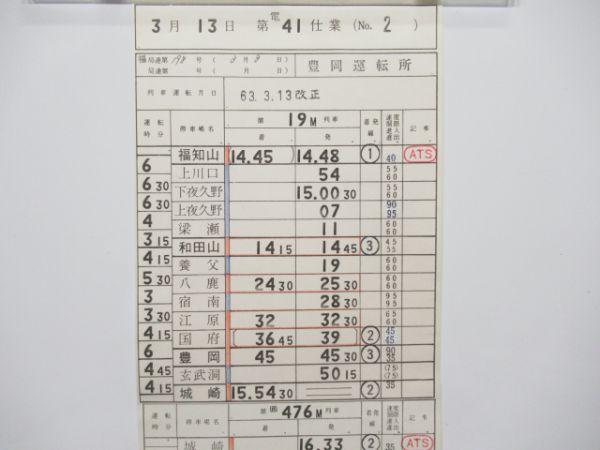 3月 13日 第電41仕業 (No. 2 )
福局達第 198 号 ( 3月 8日) 豊岡運転所
局達第 号 ( 月 日)
列車運転月日 63.3.13改正
運転時分 停車場名 第 19M 列車 着発線 速度制限 進入進出 記事
着 発
福知山 14.45 14.48 ① 40 ATS
6 上川口 54 55 60
6 30 下夜久野 15.00 30 55 60
6 30 上夜久野 07 90 95
4 梁瀬 11 60 60
3 15 和田山 14 15 14 45 ③ 45 55
4 15 養父 19 60 60
5 30 八鹿 24 30 25 30 60 60
3 宿南 28 30 95 95
3 30 江原 32 32 30 65 60
4 15 国府 (36 45 39) ② 45 45
6 豊岡 45 45 30 ③ 90 35
4 45 玄武洞 50 15 (75) (75)
4 15 城崎 15.54 30 ② 35
運転時分 停車場名 第 476M 列車 着発線 速度制限 進入進出 記事
着 発
城崎 16.33 ② 35 ATS